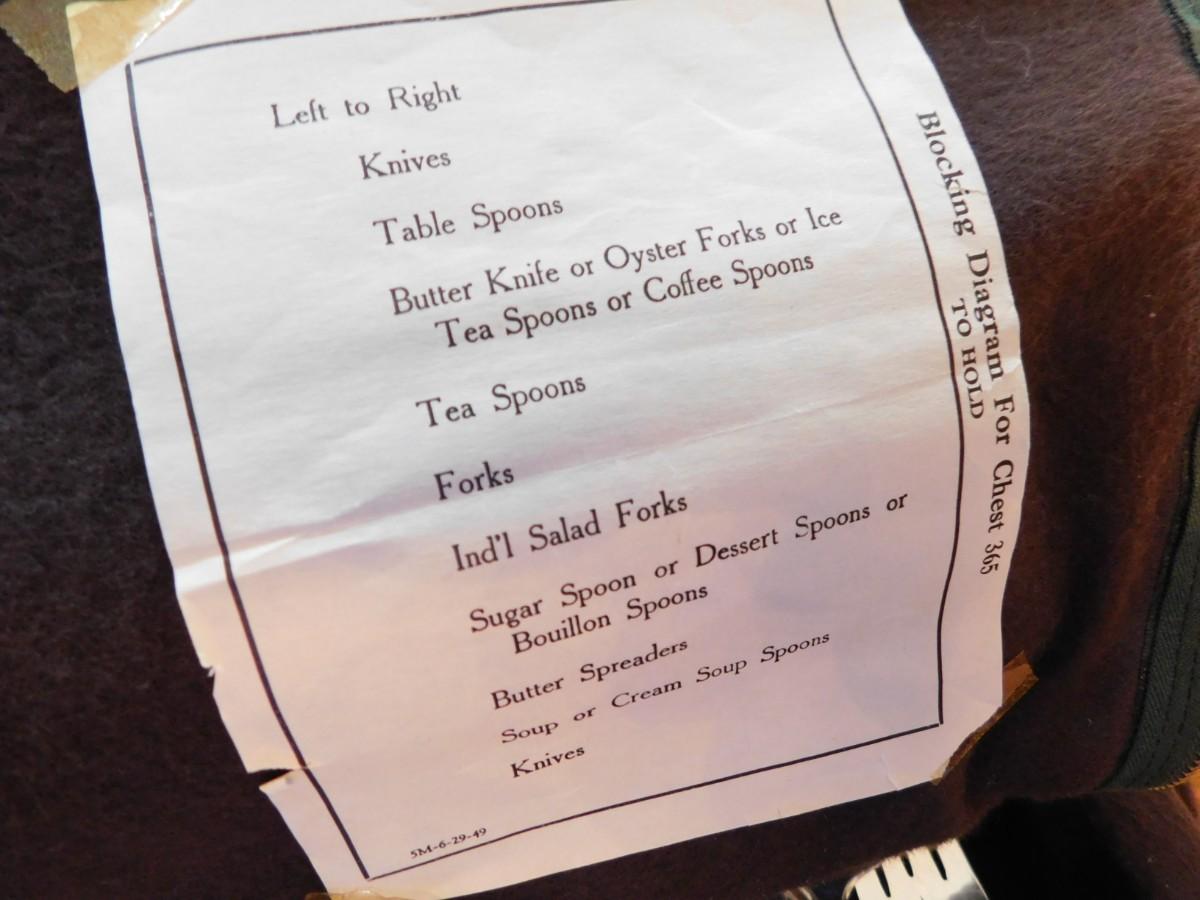 Left to Right
Knives
Table Spoons
Butter Knife or Oyster Forks or Ice
Tea Spoons or Coffee Spoons
Tea Spoons
Forks
Ind'l Salad Forks
Sugar Spoon or Dessert Spoons or
Bouillon Spoons
Butter Spreaders
Soup or Cream Soup Spoons
Knives
5M-6-29-49
Blocking Diagram For Chest 365
TO HOLD